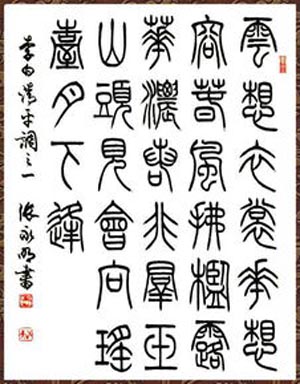 雲想衣裳華想
容春風拂檻露
華濃若非羣玉
山頭見會向瑤
臺月下逢
李白清平調之一 張永明書